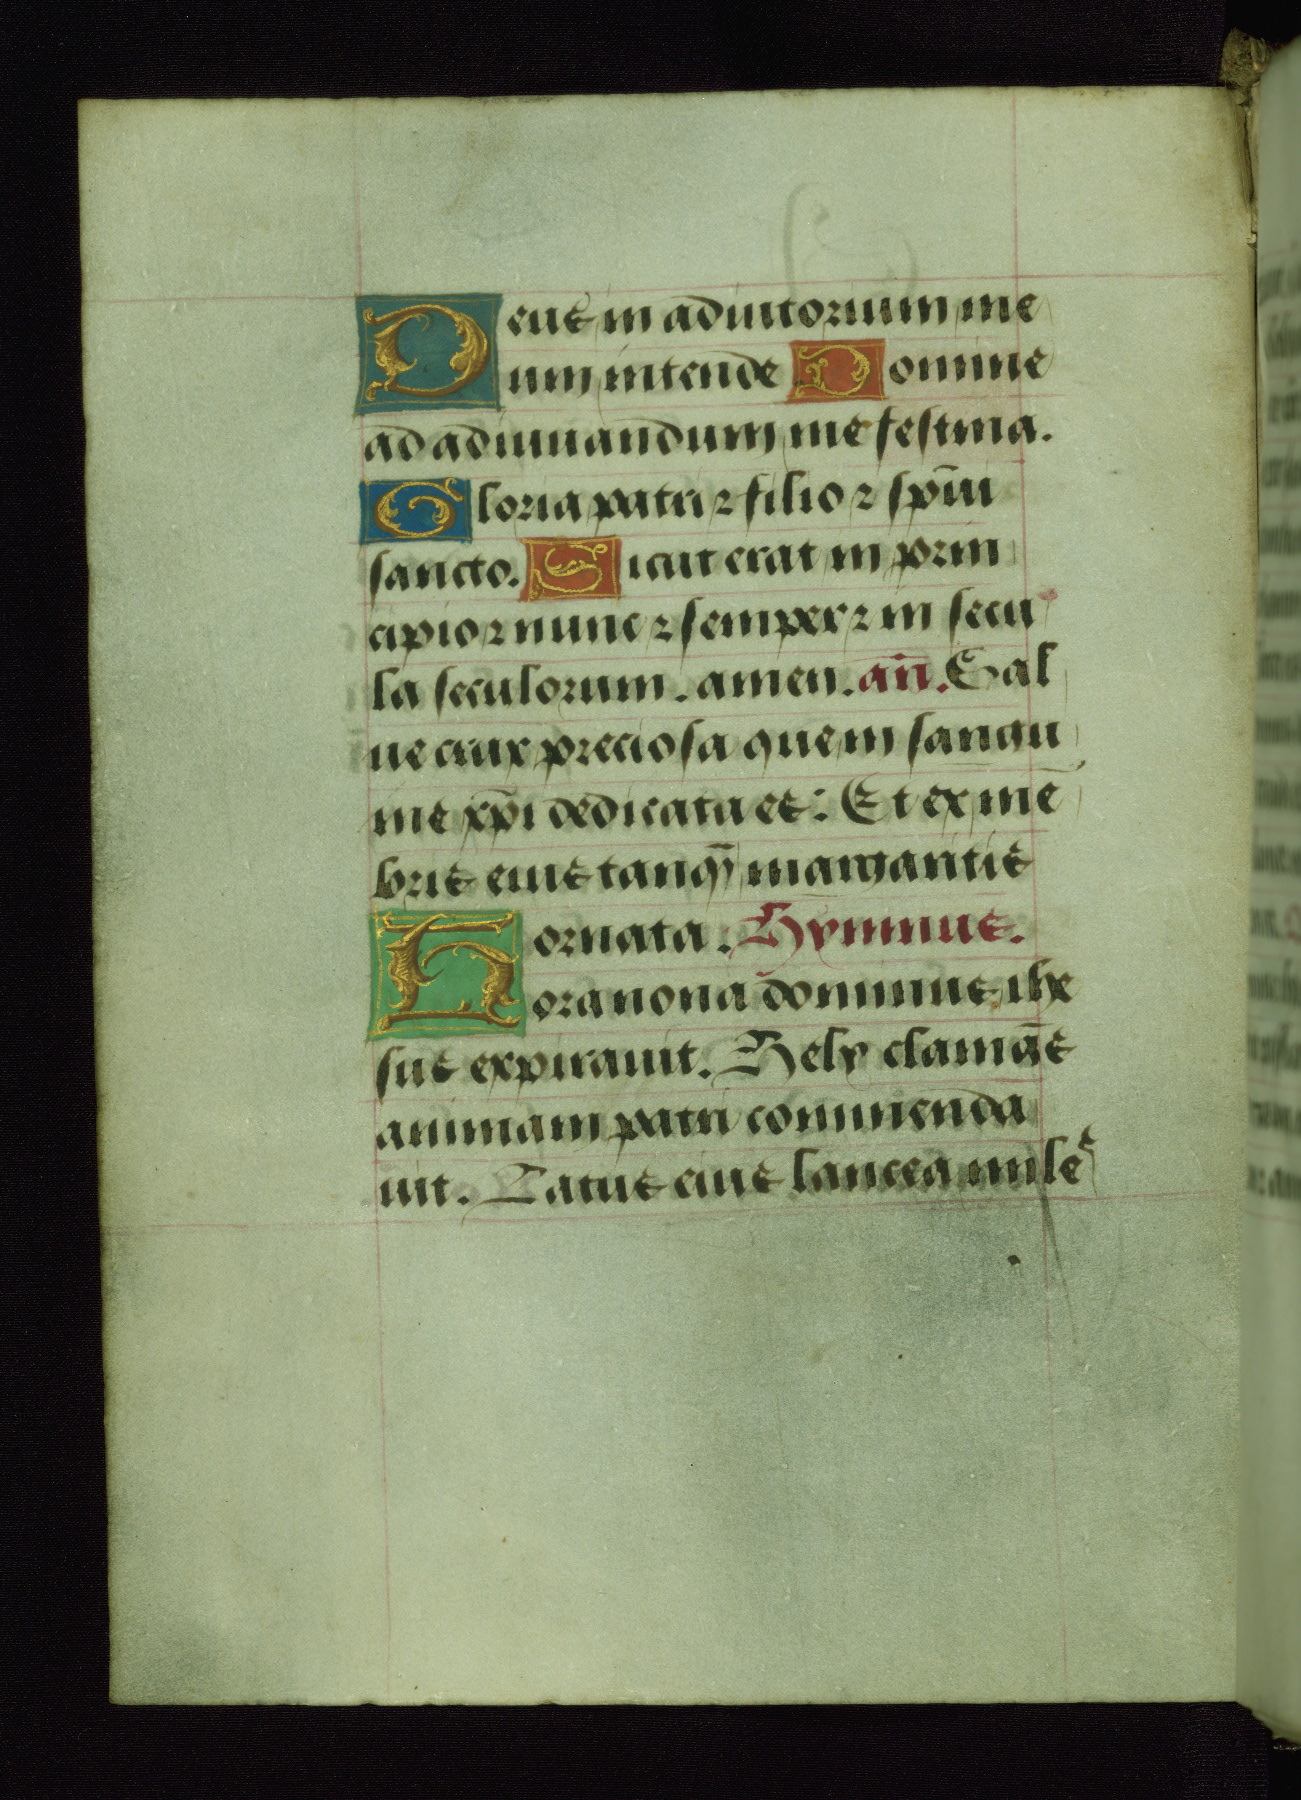 Deus in adiutorium me
um intende Domine
ad adiuuandum me festina.
Gloria patri ⁊ filio ⁊ spū̄i
sancto. Sicut erat in prin
cipio ⁊ nunc ⁊ semper ⁊ in secu
la seculorum. amen. añ. Sal
ue crux preciosa que in sangu
ine xp̄i dedicata es: Et ex mē
bris eius tanq̄ margaritis
ornata. Hymnus.
Hora nona dominus ihe
sus expirauit. Hely clamās
animam patri commenda
uit. Latus eius lancea mile